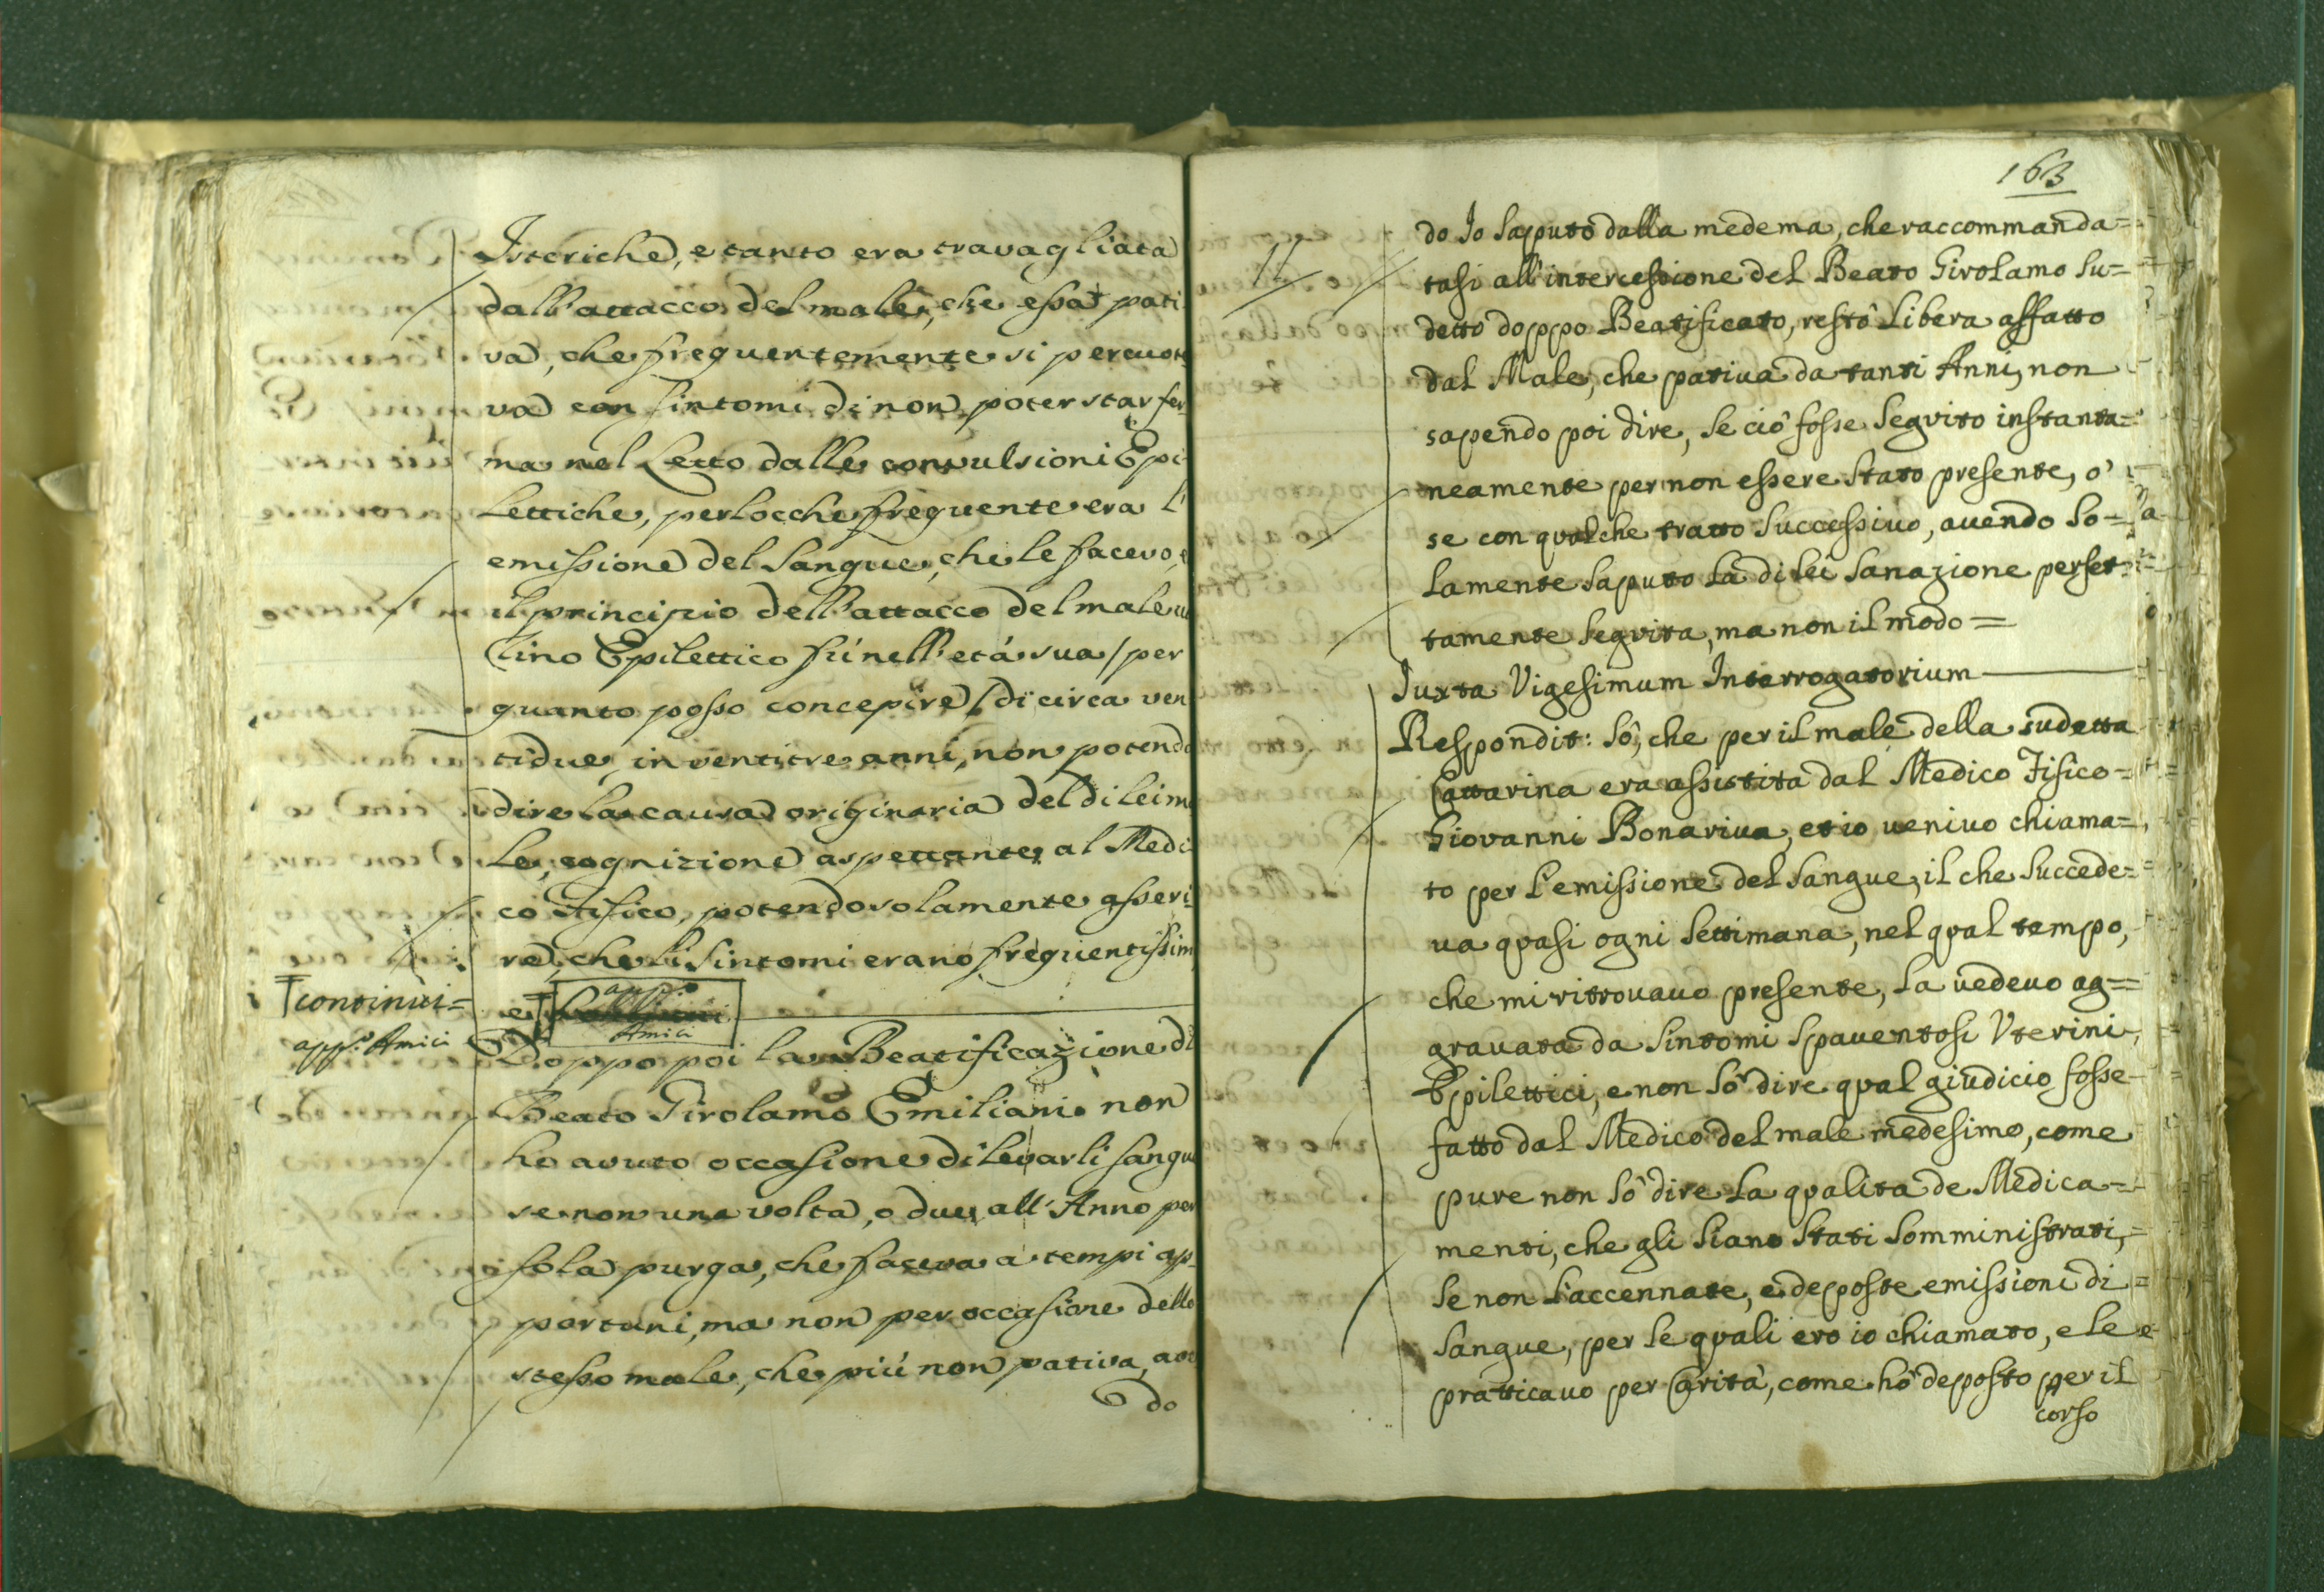 Isteriche, e tanto era travagliata
dall'attacco del male, che essa pati
va, che frequentemente si percuote
va con sintomi di non poter star fer
ma nel Letto dalle convulsioni Epi
lettiche, perlocche frequente era l'
emissione del Sangue, che le facevo, e
il principio dell'attacco del male u
tino Epilettico fú nell'etá sua / per
quanto posso concepire / di circa ven
tidue, in ventitre anni, non potendo
dire la causa originaria del di lei ma
le, cognizione aspettante al Medi
co Fisico, potendo solamente asseri
re, che li Sintomi erano frequentissim
e
continùi=
app.º Amici
app.º
Amici
Doppo poi la Beatificazione di
Beato Girolamo Emiliani non
ho avuto occasione di levarli sangue
se non una volta, o due all'Anno per
sola purga, che faceva a tempi op
portuni, ma non per occasione dello
stesso male, che più non pativa, aven
do
163
do Io saputo dalla medema, che raccommanda=
tasi all'intercessione del Beato Girolamo su=
detto doppo Beatificato, restò Libera affatto
dal Male, che patiua da tanti Anni, non
sapendo poi dire, se ciò fosse seguito instanta=
neamente per non essere stato presente, ò
se con qualche tratto successiuo, auendo so=
lamente saputo la di lei sanazione perfet=
tamente seguita, ma non il modo =
Iuxta Vigesimum Interrogatorium
Respondit: Sò, che per il male della sudetta
Cattarina era assistita dal Medico Fisico=
Giovanni Bonariua, et io ueniuo chiama=
to per l'emissione del sangue, il che succede=
ua quasi ogni settimana, nel qual tempo,
che mi ritrouauo presente, la uedeuo ag=
grauata da sintomi spauentosi Vterini
Epilettici, e non sò dire qual giudicio fosse
fatto dal Medico del male medesimo, come
pure non sò dire la qualità de Medica=
menti, che gli siano stati somministrati,
se non l'accennate, e deposte emissioni di
sangue, per le quali ero io chiamato, e le
pratticauo per Carità, come hò deposto per il
corso